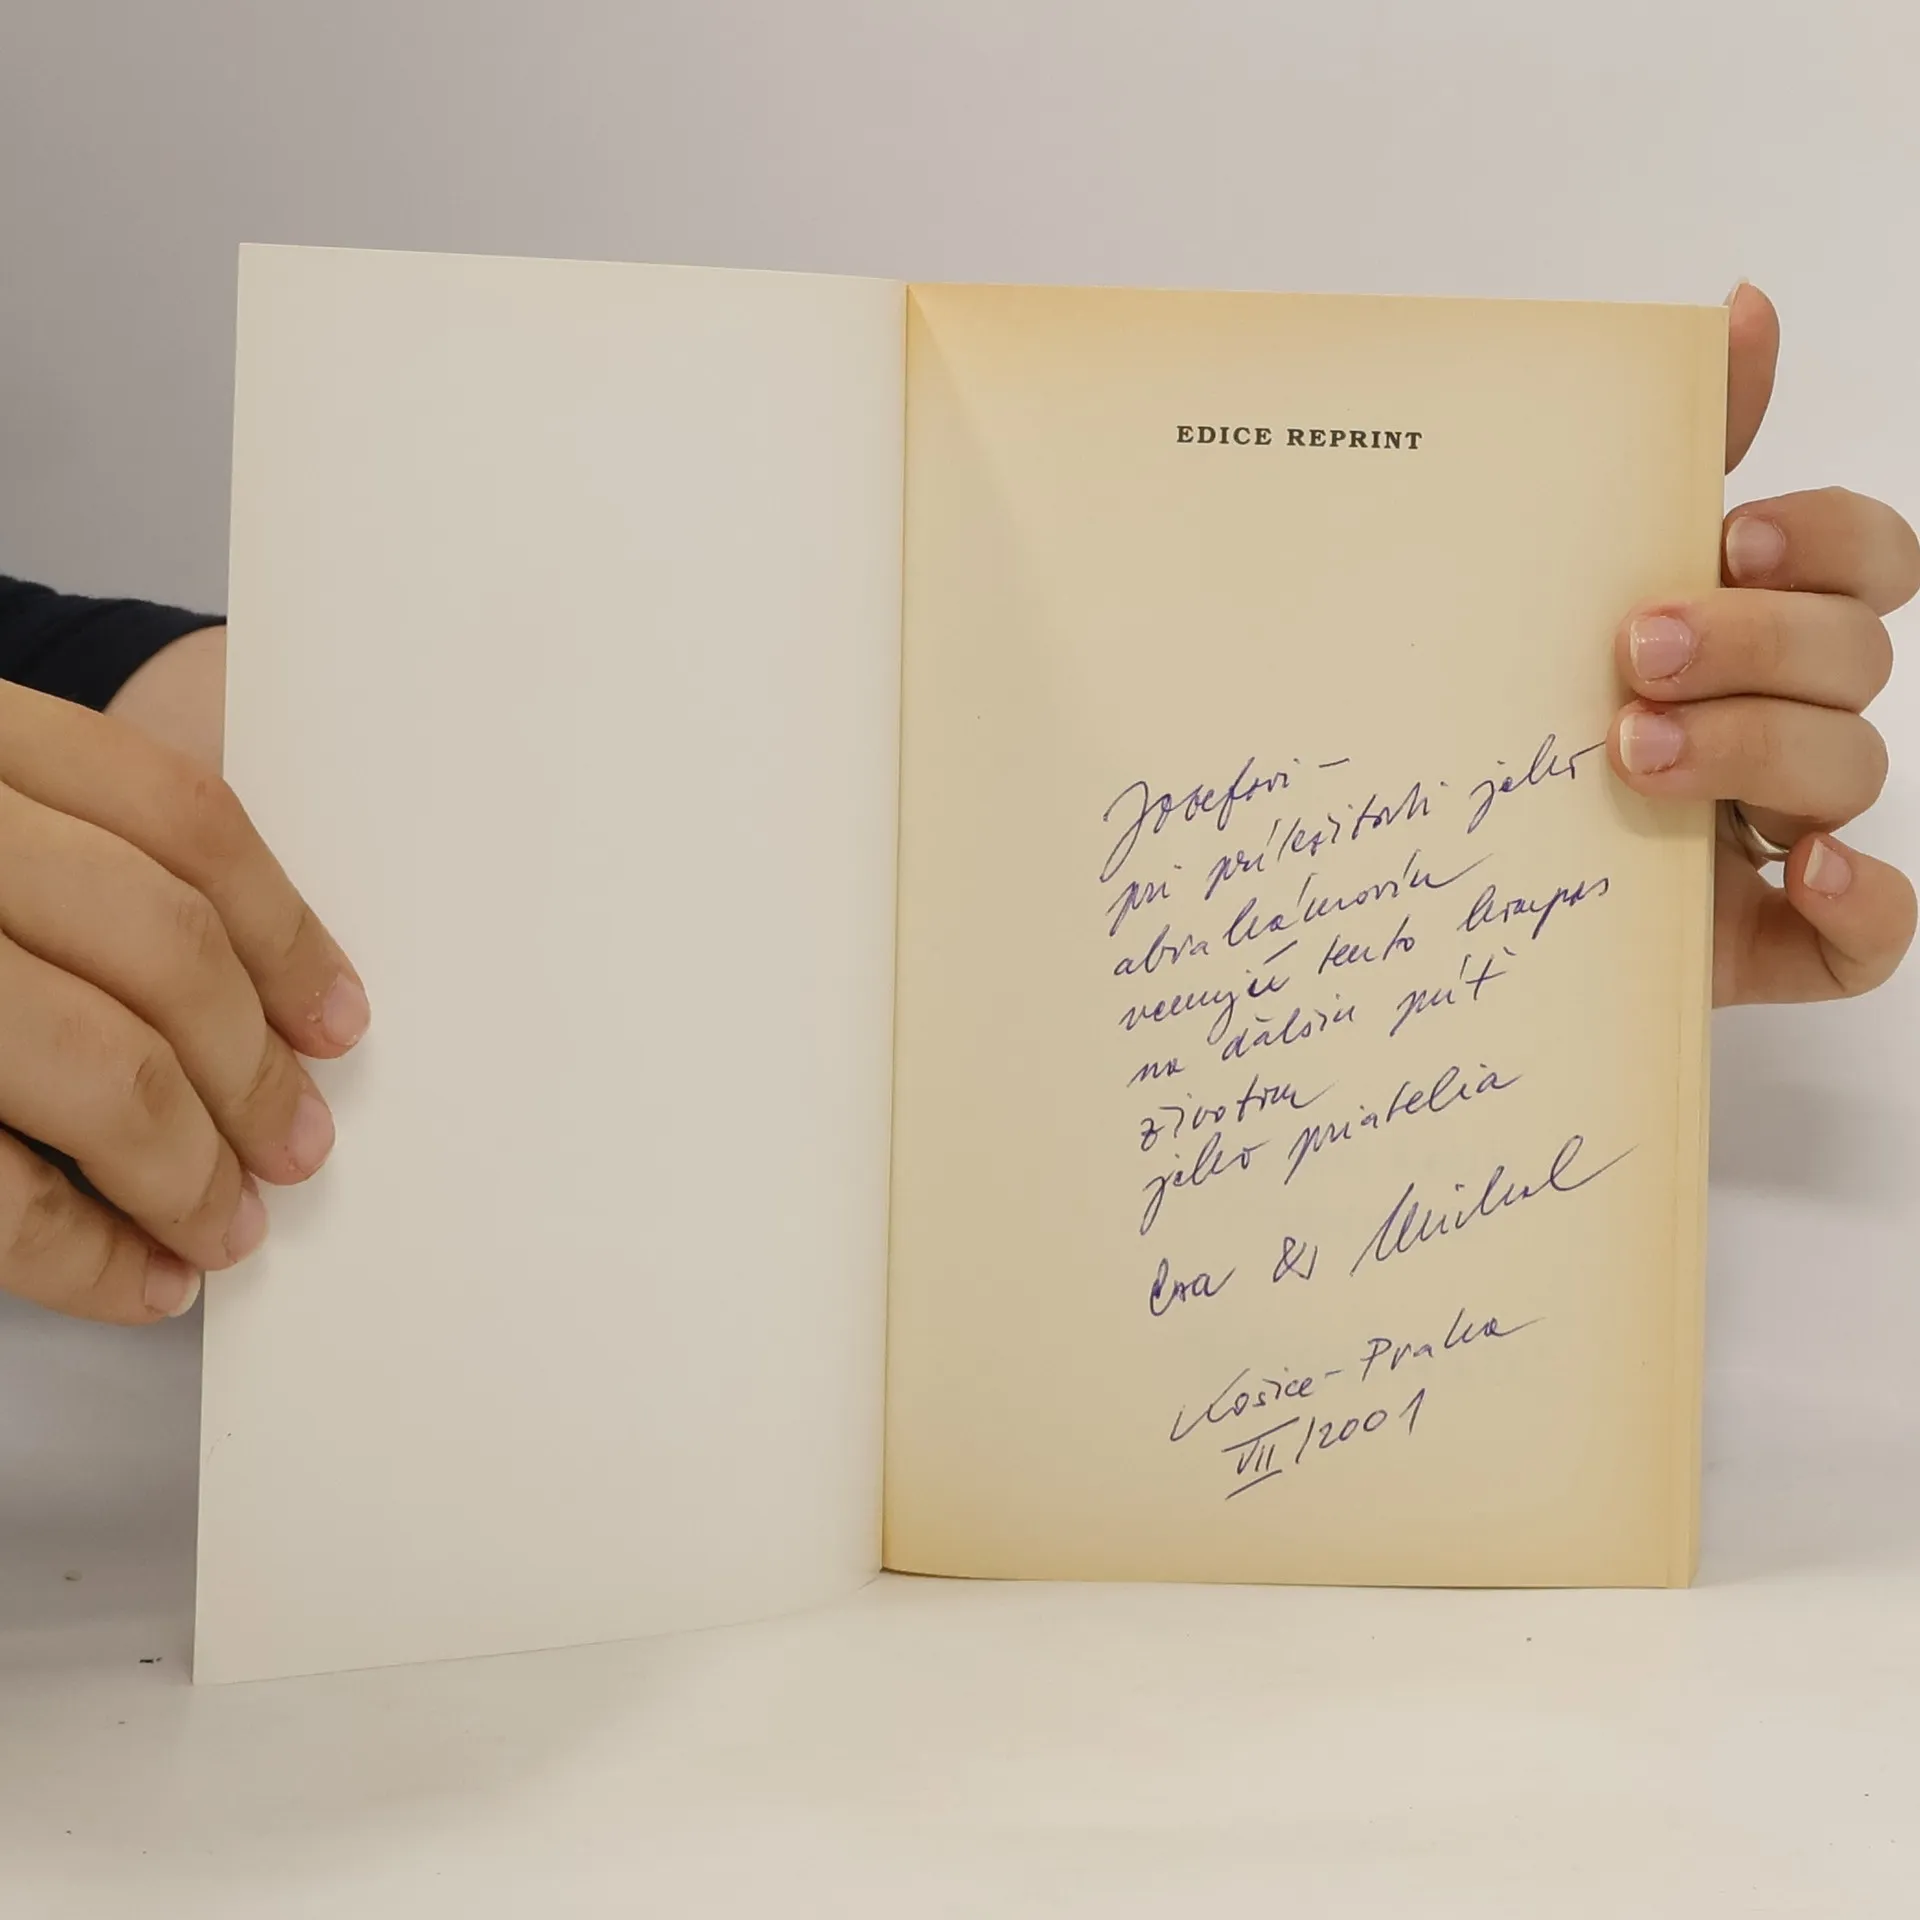 EDICE REPRINT
Josefovi –
pri príležitosti jeho
abrahámovín
venujú tento kompas
na ďalšiu púť
životom
jeho priatelia
Eva & Michal
Košice – Praha
VII/2001